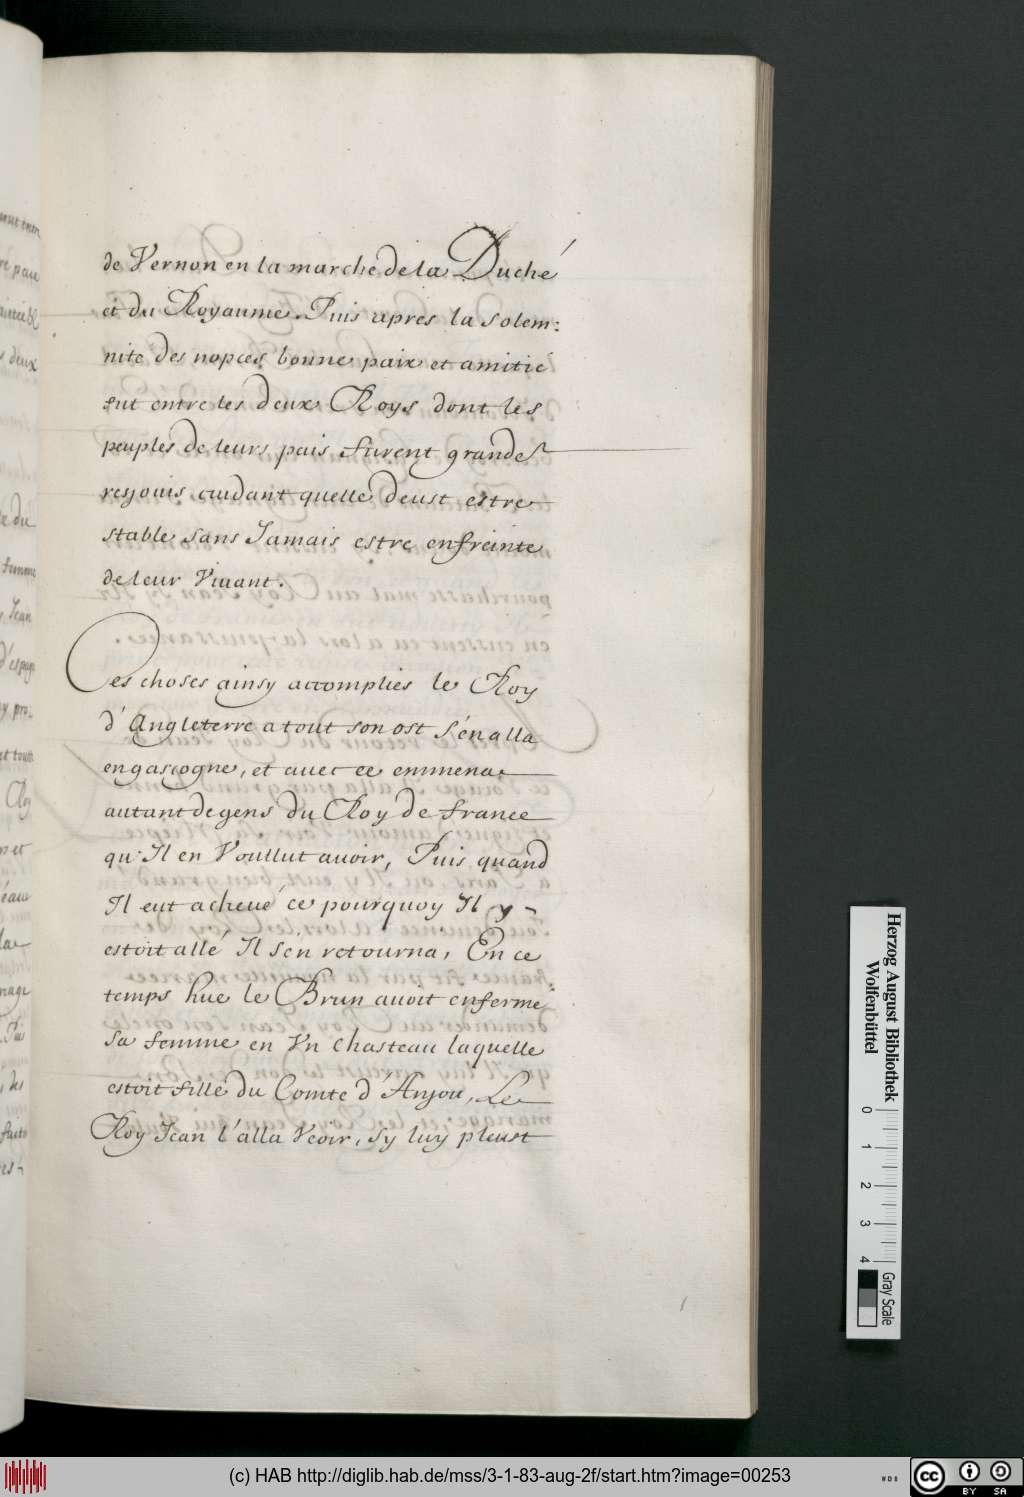 de Vernon en la marche de la Duché
et du Royaume. Puis apres la solem:
nite des nopces bonne paix et amitié
fut entre les deux Roys dont les
peuples de leurs pais furent grandes
resjouis cuidant quelle deust estre
stable sans Jamais estre enfreinte
de leur Viuant.
Ces choses ainsy accomplies le Roy
d'Angleterre a tout son ost s'en alla
en gascogne, et auec ce emmena
autant de gens du Roy de france
qu'Il en Voullut auoir, Puis quand
Il eut acheué ce pourquoy Il y -
estoit allé Il s'en retourna, En ce
temps hue le Brun auoit enfermé
sa femme en Vn Chasteau laquelle
estoit fille du Comte d'Anjou, Le
Roy Jean l'alla Veoir, sy luy pleust
Herzog August Bibliothek
Wolfenbüttel
0 1 2 3 4
Gray Scale
(c) HAB http://diglib.hab.de/mss/3-1-83-aug-2f/start.htm?image=00253
WDB
cc BY SA